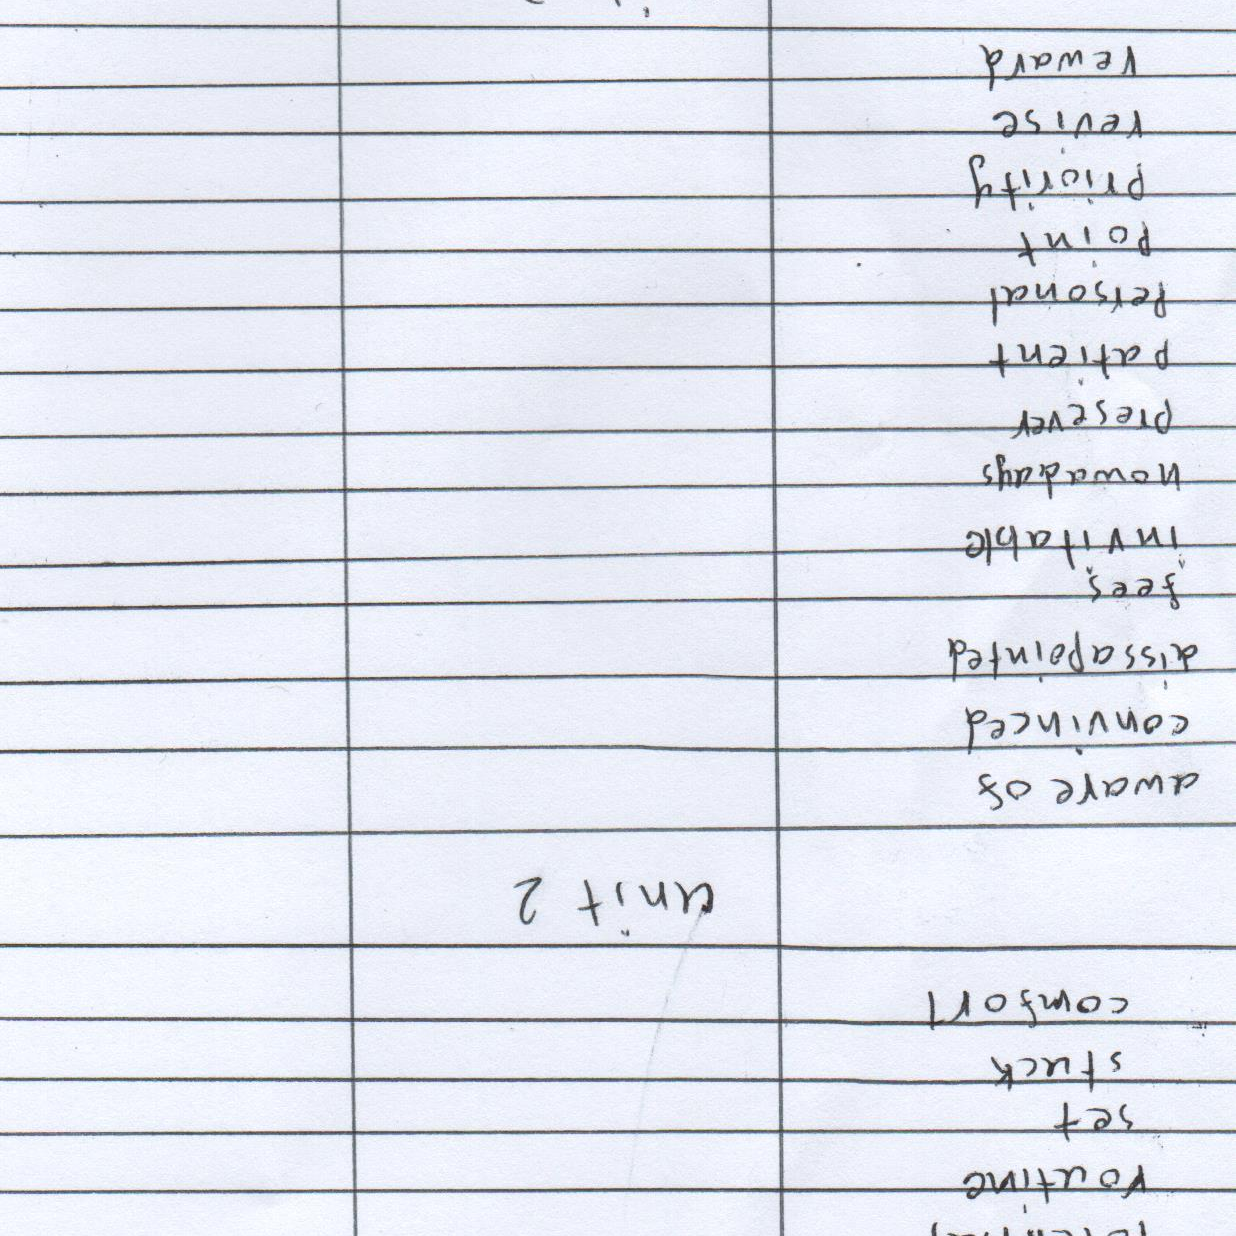 routine
set
stuck
comfort
unit 2
aware of
convinced
dissapointed
fees
invitable
nowadays
presever
patient
personal
point
priority
revise
reward